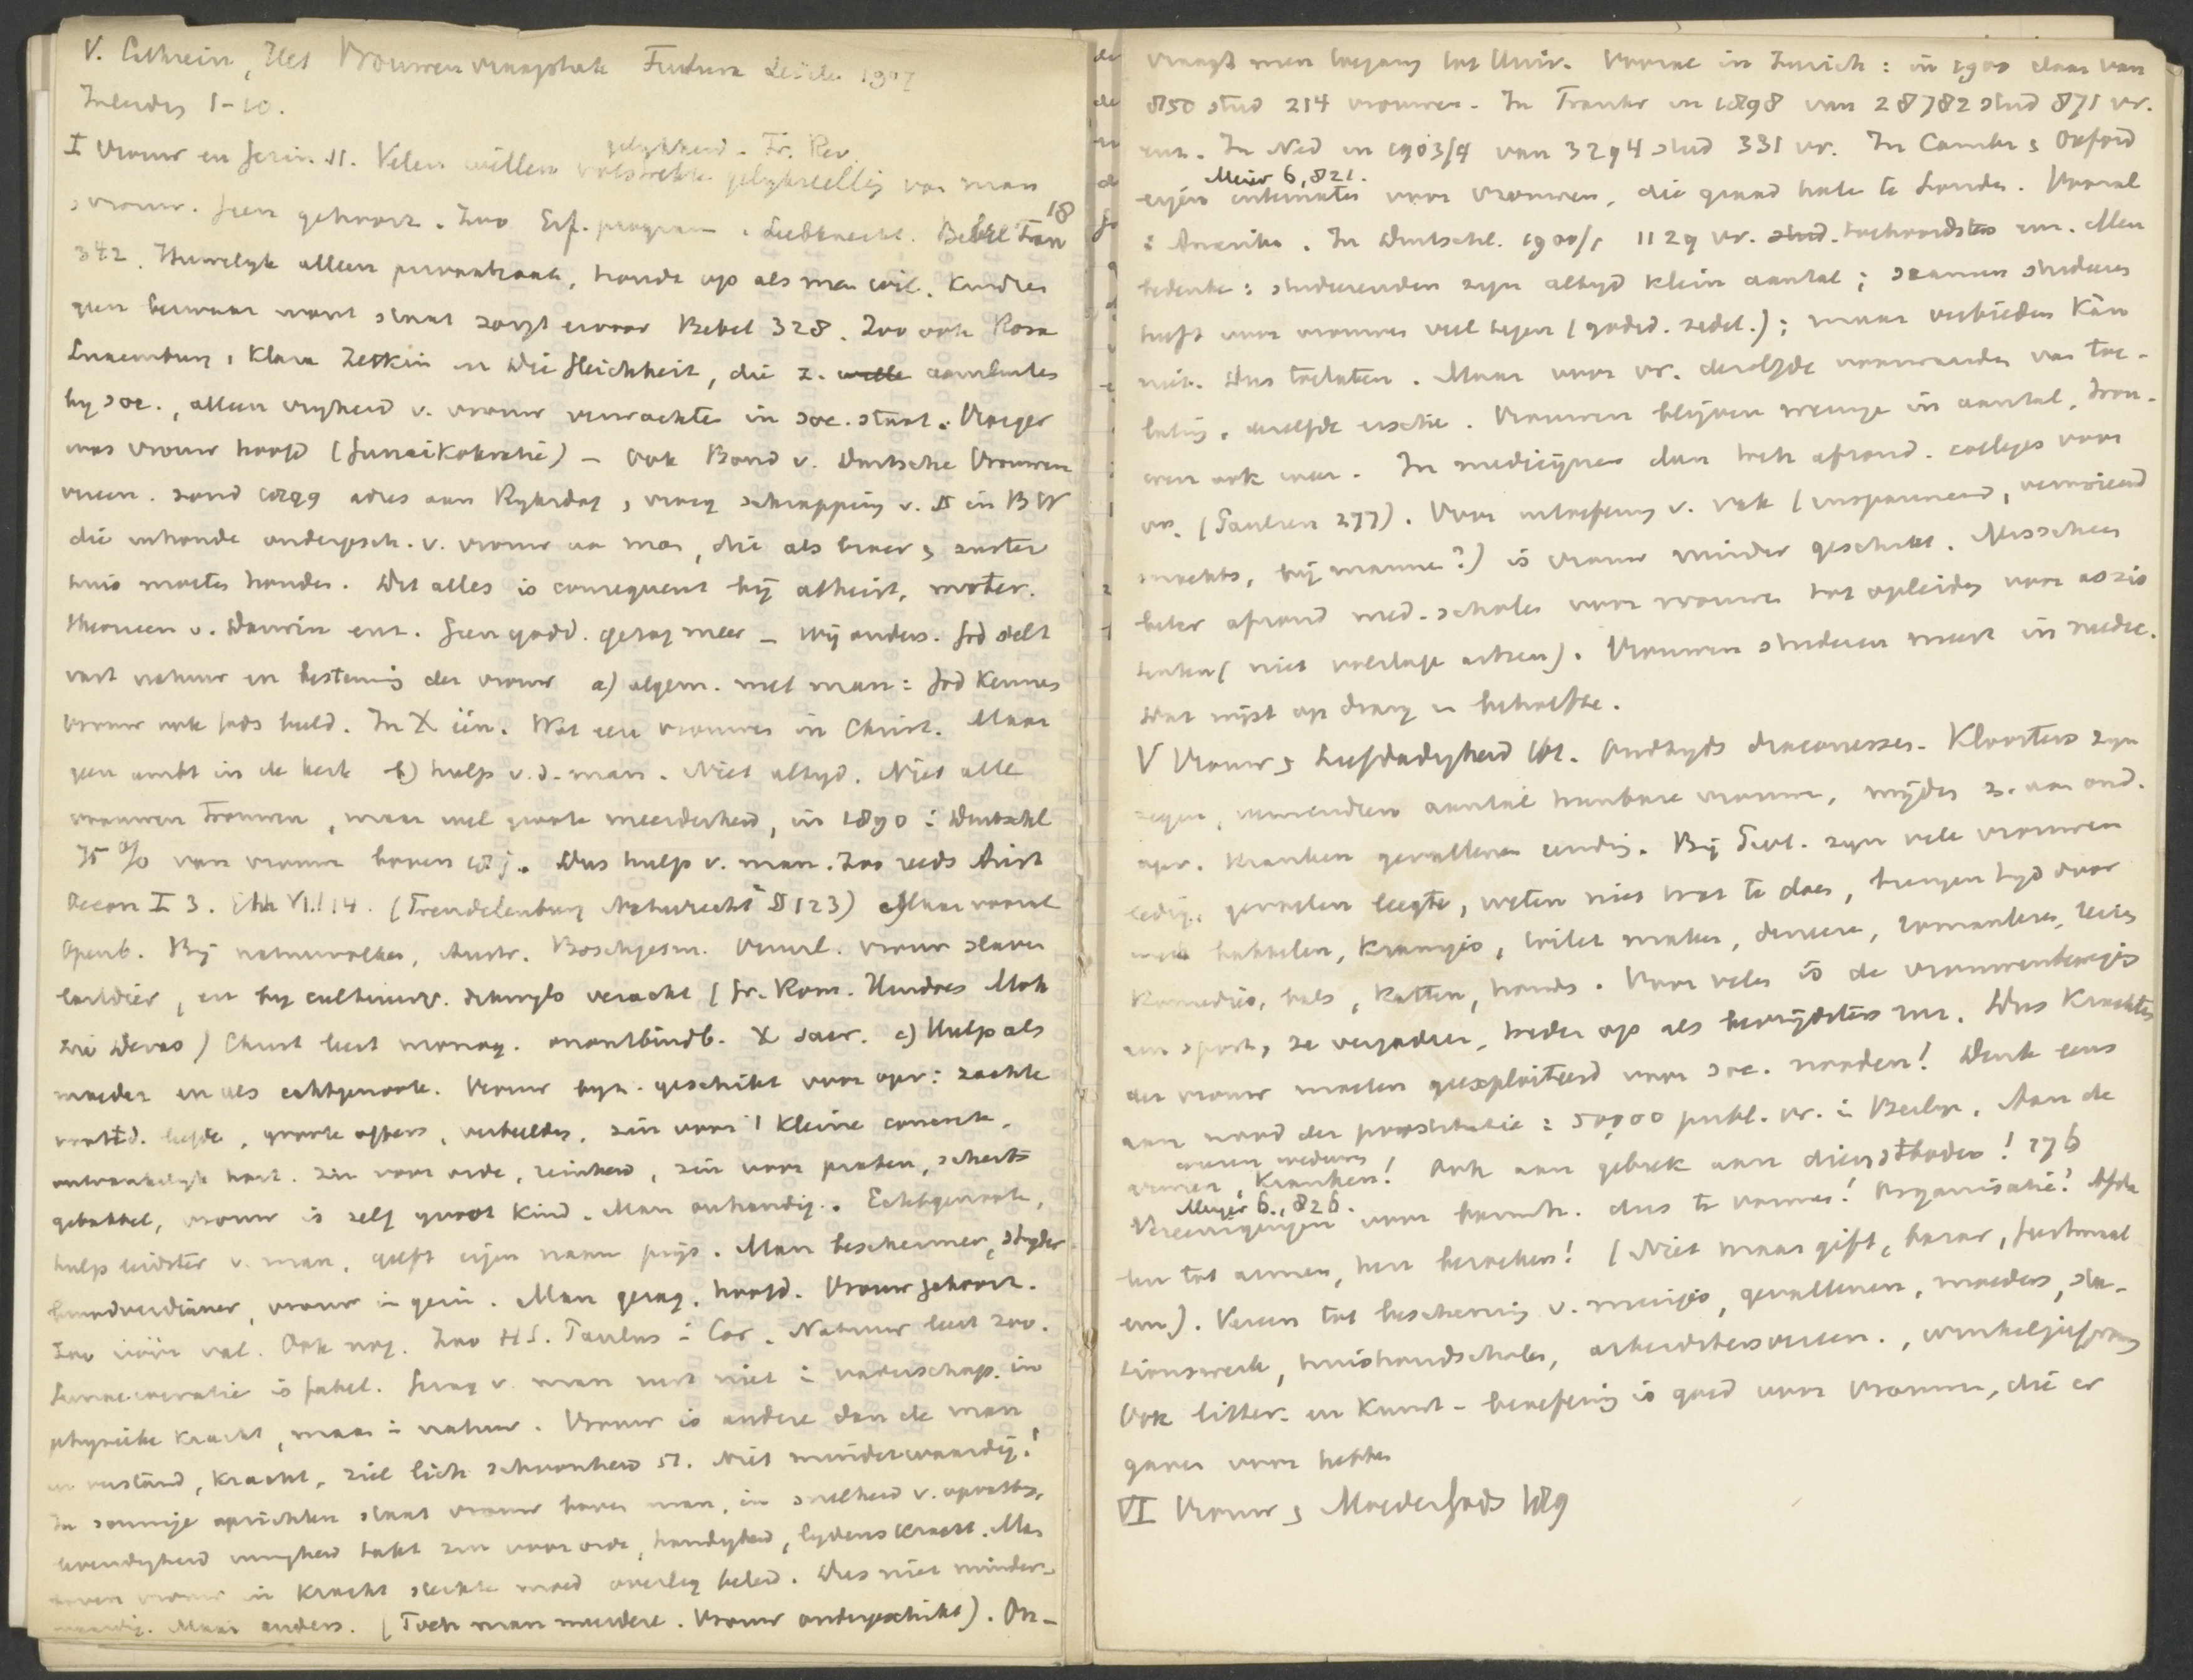 V. Cathrein, Het Vrouwenvraagstuk Futura Leiden 1907
Inleiding 1-10.
I Vrouw en gezin 11. Velen willen volstrekte gelijkstellig van man
gelykheid. Fr. Rev.
& vrouw. Geen gehoorz. Zoo Erf. program. Liebknecht. Bebel Frau 18
342. Huwelyk alleen privaatzaak, houdt op als men wil. Kindren
geen bezwaar want staat zorgt ervoor Bebel 328. Zoo ook Rosa
Luxemburg, Klara Zetkin in Die Gleichheit, die z. aansluiten
by soc., alleen vryheid v. vrouw verwachten in soc. staat. Vroeger
was vrouw hoofd (Gunaikokratie) - Ook Bond v. Duitsche Vrouwen
vereen. zond 1899 adres aan Ryksdag, vroeg schrapping v. § in BW
die inhoude ondergesch. v. vrouw aan man, die als broer & zuster
huis moeten houden. Dit alles is consequent bij atheist, mater.
theorieen v. Darwin enz. Geen godd. gezag meer - Wij anders. God stelt
vast natuur en bestemig der vrouw a) algem. met man: God kennen
vrouw ook Gods beeld. In X één. Wat een vrouwen in Christ. Maar
geen ambt in de kerk b) hulp v. d. man. Niet altyd. Niet alle
vrouwen trouwen, maar wel groote meerderheid, in 1890 in Duitschl
75 % van vrouwen boven 18 j. Dus hulp v. man. Zoo reeds Arist
Oecon I 3. Eth VIII 14. (Trendelenburg Naturrecht § 123) Maar vooral
Openb. Bij natuurvolken, Austr. Boschjesm. Vuurl. vrouw slavin
lastdier, en by cultuurv. dikwyls veracht (Gr. Rom. Hindoes Moh
zie Devas) Christ leert monog. onontbindb. & sacr. c) Hulp als
moeder en als echtgenoote. Vrouw byz. geschikt voor opv: zachte
moed. liefde, groote offers, verbeelding, zin voor 't kleine concrete,
ontvankelyk hart. zin voor orde, reinheid, zin voor praten, scherts
gebabbel, vrouw is zelf groot kind. Man onhandig. Echtgenoote,
hulp leidster v. man, geeft eigen naam prijs. Man beschermer, stryder
broodverdiener, vrouw in gezin. Man gezag, hoofd. Vrouw gehoorz.
Zoo vóór val. Ook nog. Zoo H.S. Paulus in Cor. Natuur leert zoo.
Gunaecocratie is fabel. Gezag v. man rust niet in vaderschap in
physieke kracht, maar in natuur. Vrouw is anders dan de man
in verstand, kracht, ziel lich schoonheid 51. Niet minderwaardig!
In sommige opzichten staat vrouw boven man, in snelheid v. opvattg,
levendigheid innigheid takt zin voor orde, handigheid, lydenskracht. Man
boven vrouw in kracht sterkte moed overleg beleid. Dus niet minder-
waardig. Maar anders. (Toch man meerdere. Vrouw ondergeschikt). On-
vraagt men toegang tot Univ. Vooral in Zurich: in 1900 daar van
850 stud 214 vrouwen. In Frankr in 1898 van 28782 stud 871 vr.
enz. In Ned in 1903/4 van 3294 stud 331 vr. In Cambr & Oxford
Meier 6, 821.
eigen internaten voor vrouwen, die graad halen te Londen. Vooral
in Amerika. In Duitschl. 1900/1 1129 vr. toehoordsters enz. Men
bedenke: studeerenden zyn altyd klein aantal; examen studeren
heeft voor vrouwen veel tegen (godsd. zedel.); maar verbieden kan
niet. Dus toelaten. Maar voor vr. dezelfde voorwaarden van toe-
lating, dezelfde eischen. Vrouwen blijven weinige in aantal, trou-
wen ook weer. In medicijnen dan toch afzond. colleges voor
vr. (Paulsen 277). Voor uitoefening v. vak (inspannend, vermoeiend
's nachts, bij mannen?) is vrouw minder geschikt. Misschien
beter afzond med. scholen voor vrouwen tot opleiden voor assis
tenten (niet volledige artsen). Vrouwen studeeren meest in medic.
Dat wijst op drang en behoefte.
V Vrouw & Liefdadigheid 168. Oudtyds diaconessen. Kloosters zyn
zegen, verminderen aantal huwbare vrouwen, wijden z. aan ond.
opv. kranken gevallenen ellendig. Bij Prot. zyn vele vrouwen
ledig, gevoelen leegte, weten niet wat te doen, brengen tyd door
met babbelen, kransjes, toilet maken, dansen, romanlezen, reizen
komedies, bals, katten, honden. Voor velen is de vrouwenbewegig
een sport, ze vergaderen, treden op als bevrijdsters enz. Dus krachten
der vrouw moeten geexploiteerd voor soc. nooden! Denk eens
aan nood der prostitutie: 50000 publ. vr. in Berlyn. Aan de
weezen weduwen
armen, kranken! Ook aan gebrek aan dienstboden! 176
Meyer 6, 826.
Vereenigingen voor barmh. dus te vormen! Organisatie! Afda
len tot armen, hen bezoeken! (Niet maar gift, bazar, festival
enz). Vereen tot bescherming v. meisjes, gevallenen, moeders, sta-
tionswerk, huishoudscholen, arbeidstersvereen., winkeljuffrouw
Ook litter. en Kunst-beoefenig is goed voor vrouwen, die er
gaven voor hebben
VI Vrouw & Moeder Gods 189